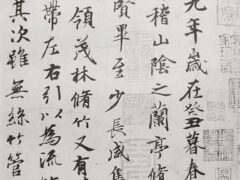 九年歲在癸丑暮春
稽山陰之蘭亭脩
賢畢至少長咸集
領茂林脩竹又有
帶左右引以為流
其次雖無絲竹管